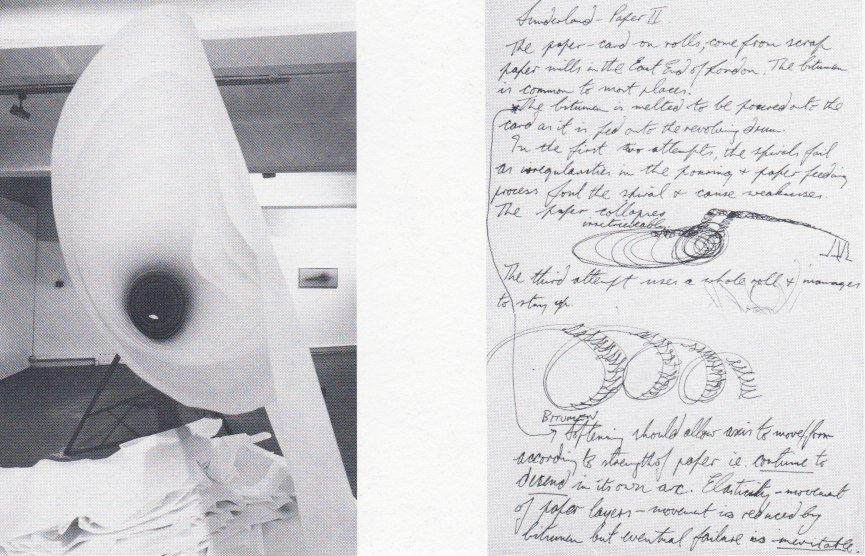 Sunderland - Paper II.
The paper - card - on rolls, come from scrap
paper mills in the East End of London. The bitumen
is common to most places.
The bitumen is melted to be poured onto the
card as it is fed onto the revolving drum.
In the first two attempts, the spirals fail
as irregularities in the pouring & paper feeding
process foul the spiral & cause weaknesses.
The paper collapses
irretrievably
The third attempt uses a whole roll & manages
to stay up.
BITUMEN
Softening should allow axis to move/form
according to strength of paper ie. continue to
in its own arc. Elasticity - movement
of paper layers - movement is reduced by
bitumen but eventual failure is inevitable.